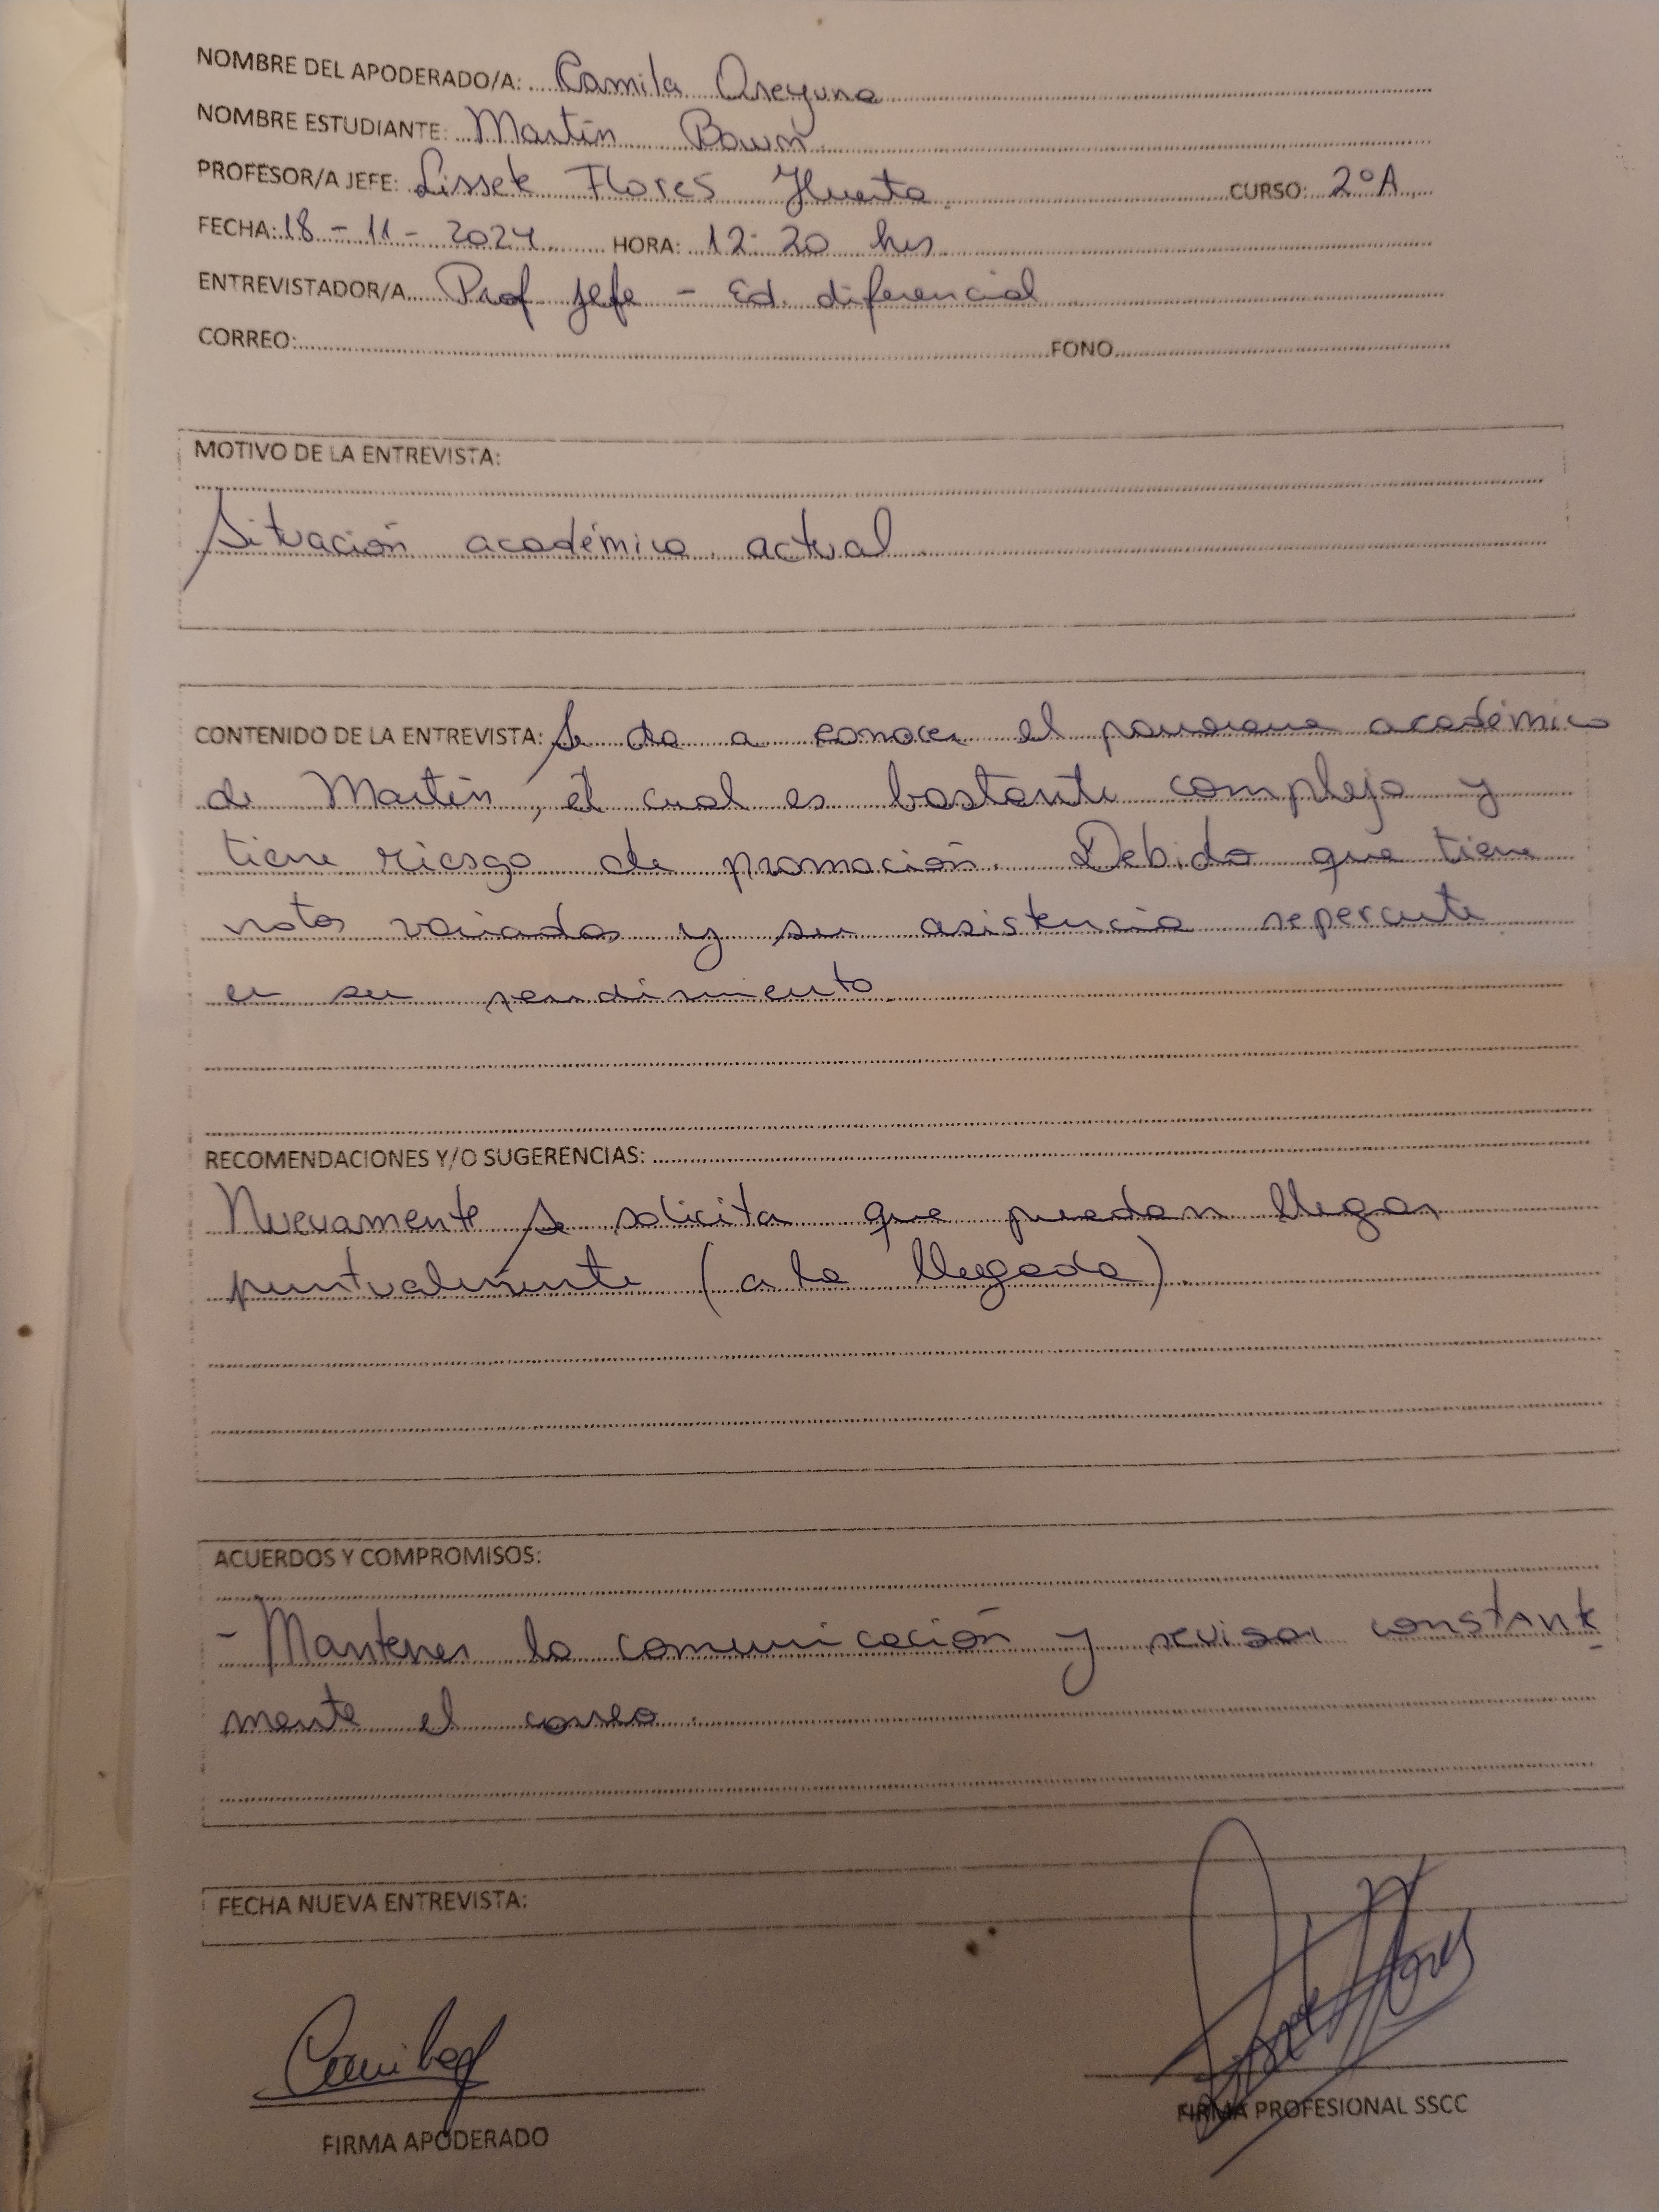 NOMBRE DEL APODERADO/A: Camila Oreyuna
NOMBRE ESTUDIANTE: Martín
PROFESOR/A JEFE: Lissete Flores Huerta CURSO: 2°A
FECHA: 18-11-2024 HORA: 12:20 hrs
ENTREVISTADOR/A Prof jefe - Ed. diferencial
CORREO: FONO
MOTIVO DE LA ENTREVISTA:
Situación académica actual
CONTENIDO DE LA ENTREVISTA: Se da a conocer el panorama académico
de Martín, el cual es bastante complejo y
tiene riesgo de promoción. Debido que tiene
notas variadas y su asistencia repercute
en su rendimiento.
RECOMENDACIONES Y/O SUGERENCIAS:
Nuevamente se solicita que puedan llegar
puntualmente (a la llegada).
ACUERDOS Y COMPROMISOS:
- Mantener la comunicación y revisar constante
mente el correo.
FECHA NUEVA ENTREVISTA:
FIRMA APODERADO
FIRMA PROFESIONAL SSCC